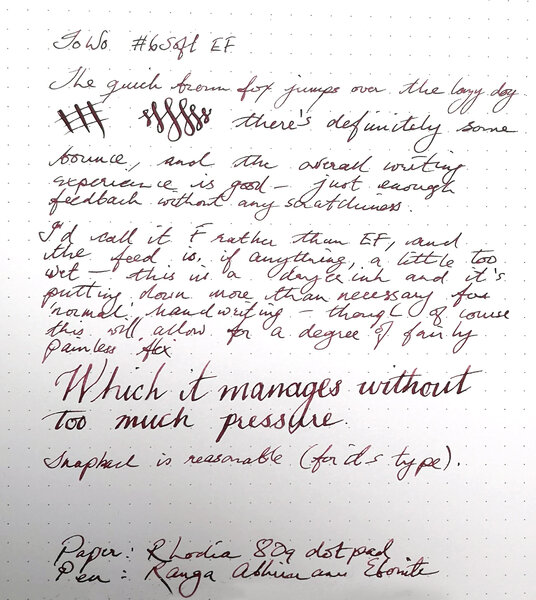 JoWo #6 Soft EF
The quick brown fox jumps over the lazy dog
there's definitely some
bounce, and the overall writing
experience is good – just enough
feedback without any scratchiness.
I'd call it F rather than EF, and
the feed is, if anything, a little too
wet – this is a dryer ink and it's
putting down more than necessary for
normal handwriting – though of course
this will allow for a degree of fairly
painless flex
Which it manages without
too much pressure.
Snapback is reasonable (for its type).
Paper: Rhodia 80g dotpad
Pen: Ranga Abhimani Ebonite